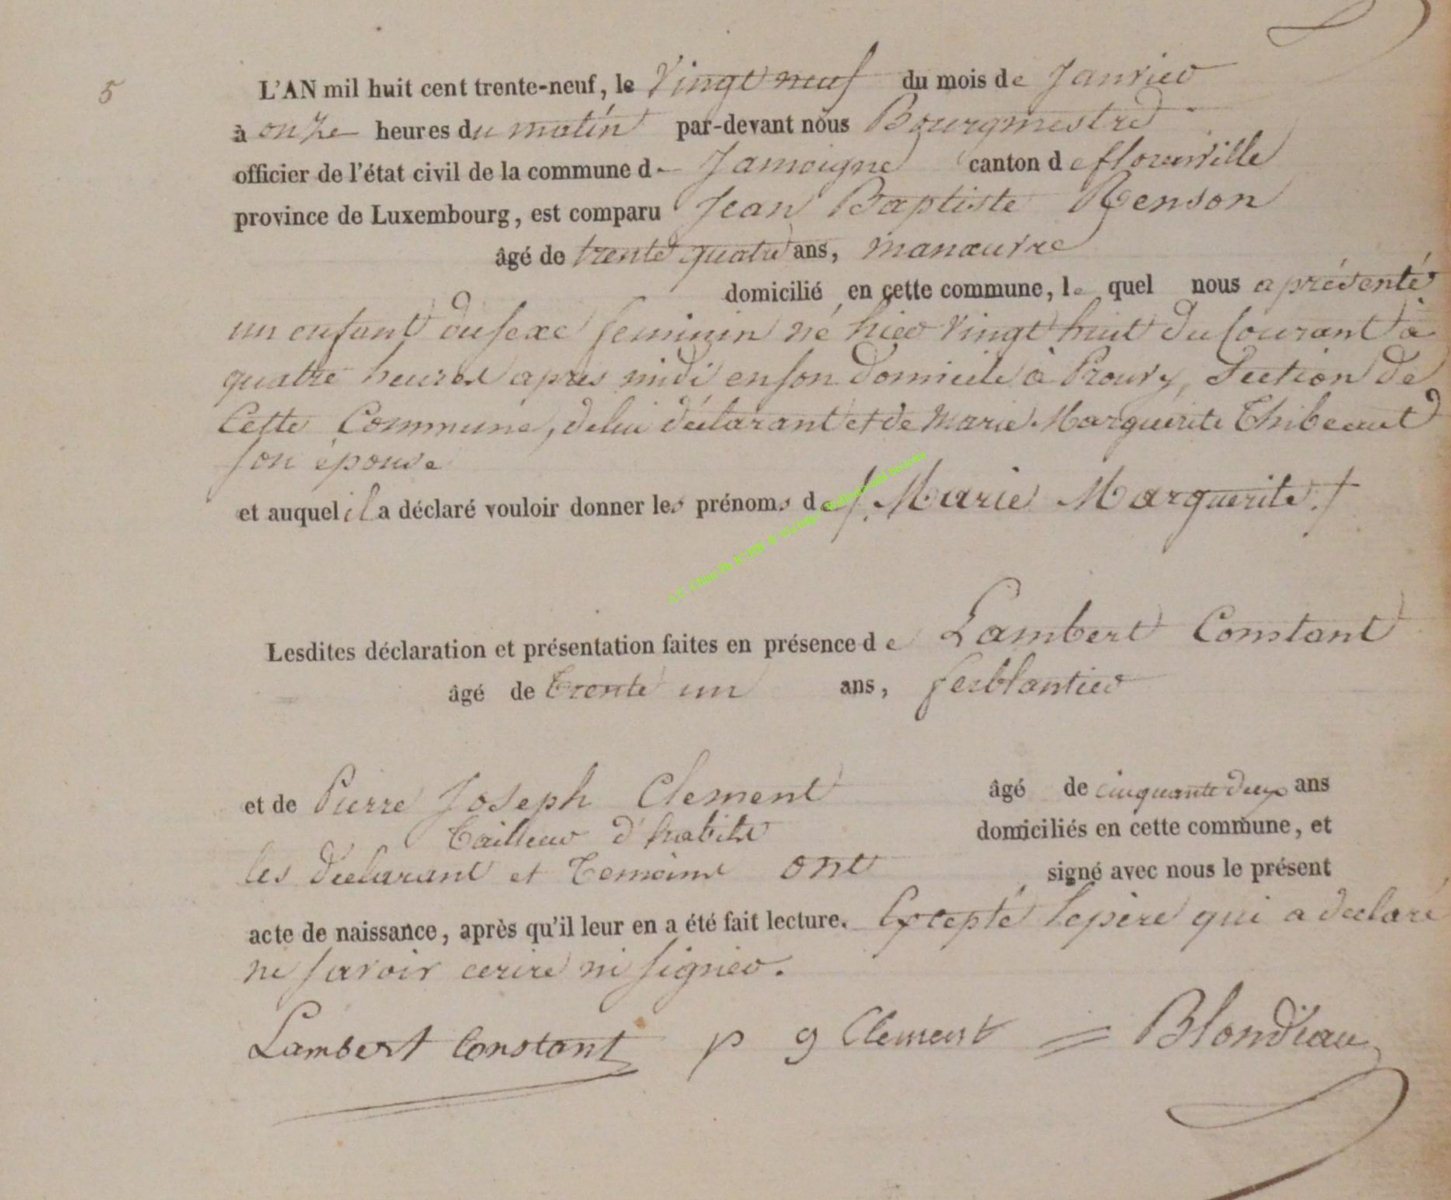 5
L'AN mil huit cent trente-neuf, le Vingt neuf du mois de Janvier
à onze heures du matin par-devant nous Bourgmestre
officier de l'état civil de la commune de Jamoigne canton de florenville
province de Luxembourg, est comparu Jean Baptiste Renson
âgé de trente quatre ans, manœuvre
domicilié en cette commune, le quel nous a présenté
un enfant du sexe feminin né hier vingt huit du Courant à
quatre heures apres midi en son domicile à Prouvy, Section de
Cette Commune, de lui déclarant et de Marie Marguerite Thibeaut
son épouse
et auquel il a déclaré vouloir donner les prénoms de /. Marie Marguerite. /
Lesdites déclaration et présentation faites en présence de Lambert Constant
âgé de trente un ans, ferblantier
et de Pierre Joseph Clement âgé de cinquante deux ans
Tailleur d'habits domiciliés en cette commune, et
les déclarant et temoins ont signé avec nous le présent
acte de naissance, après qu'il leur en a été fait lecture. Excepté le père qui a declaré
ne savoir ecrire ni signer.
Lambert Constant p g Clement = Blondiau